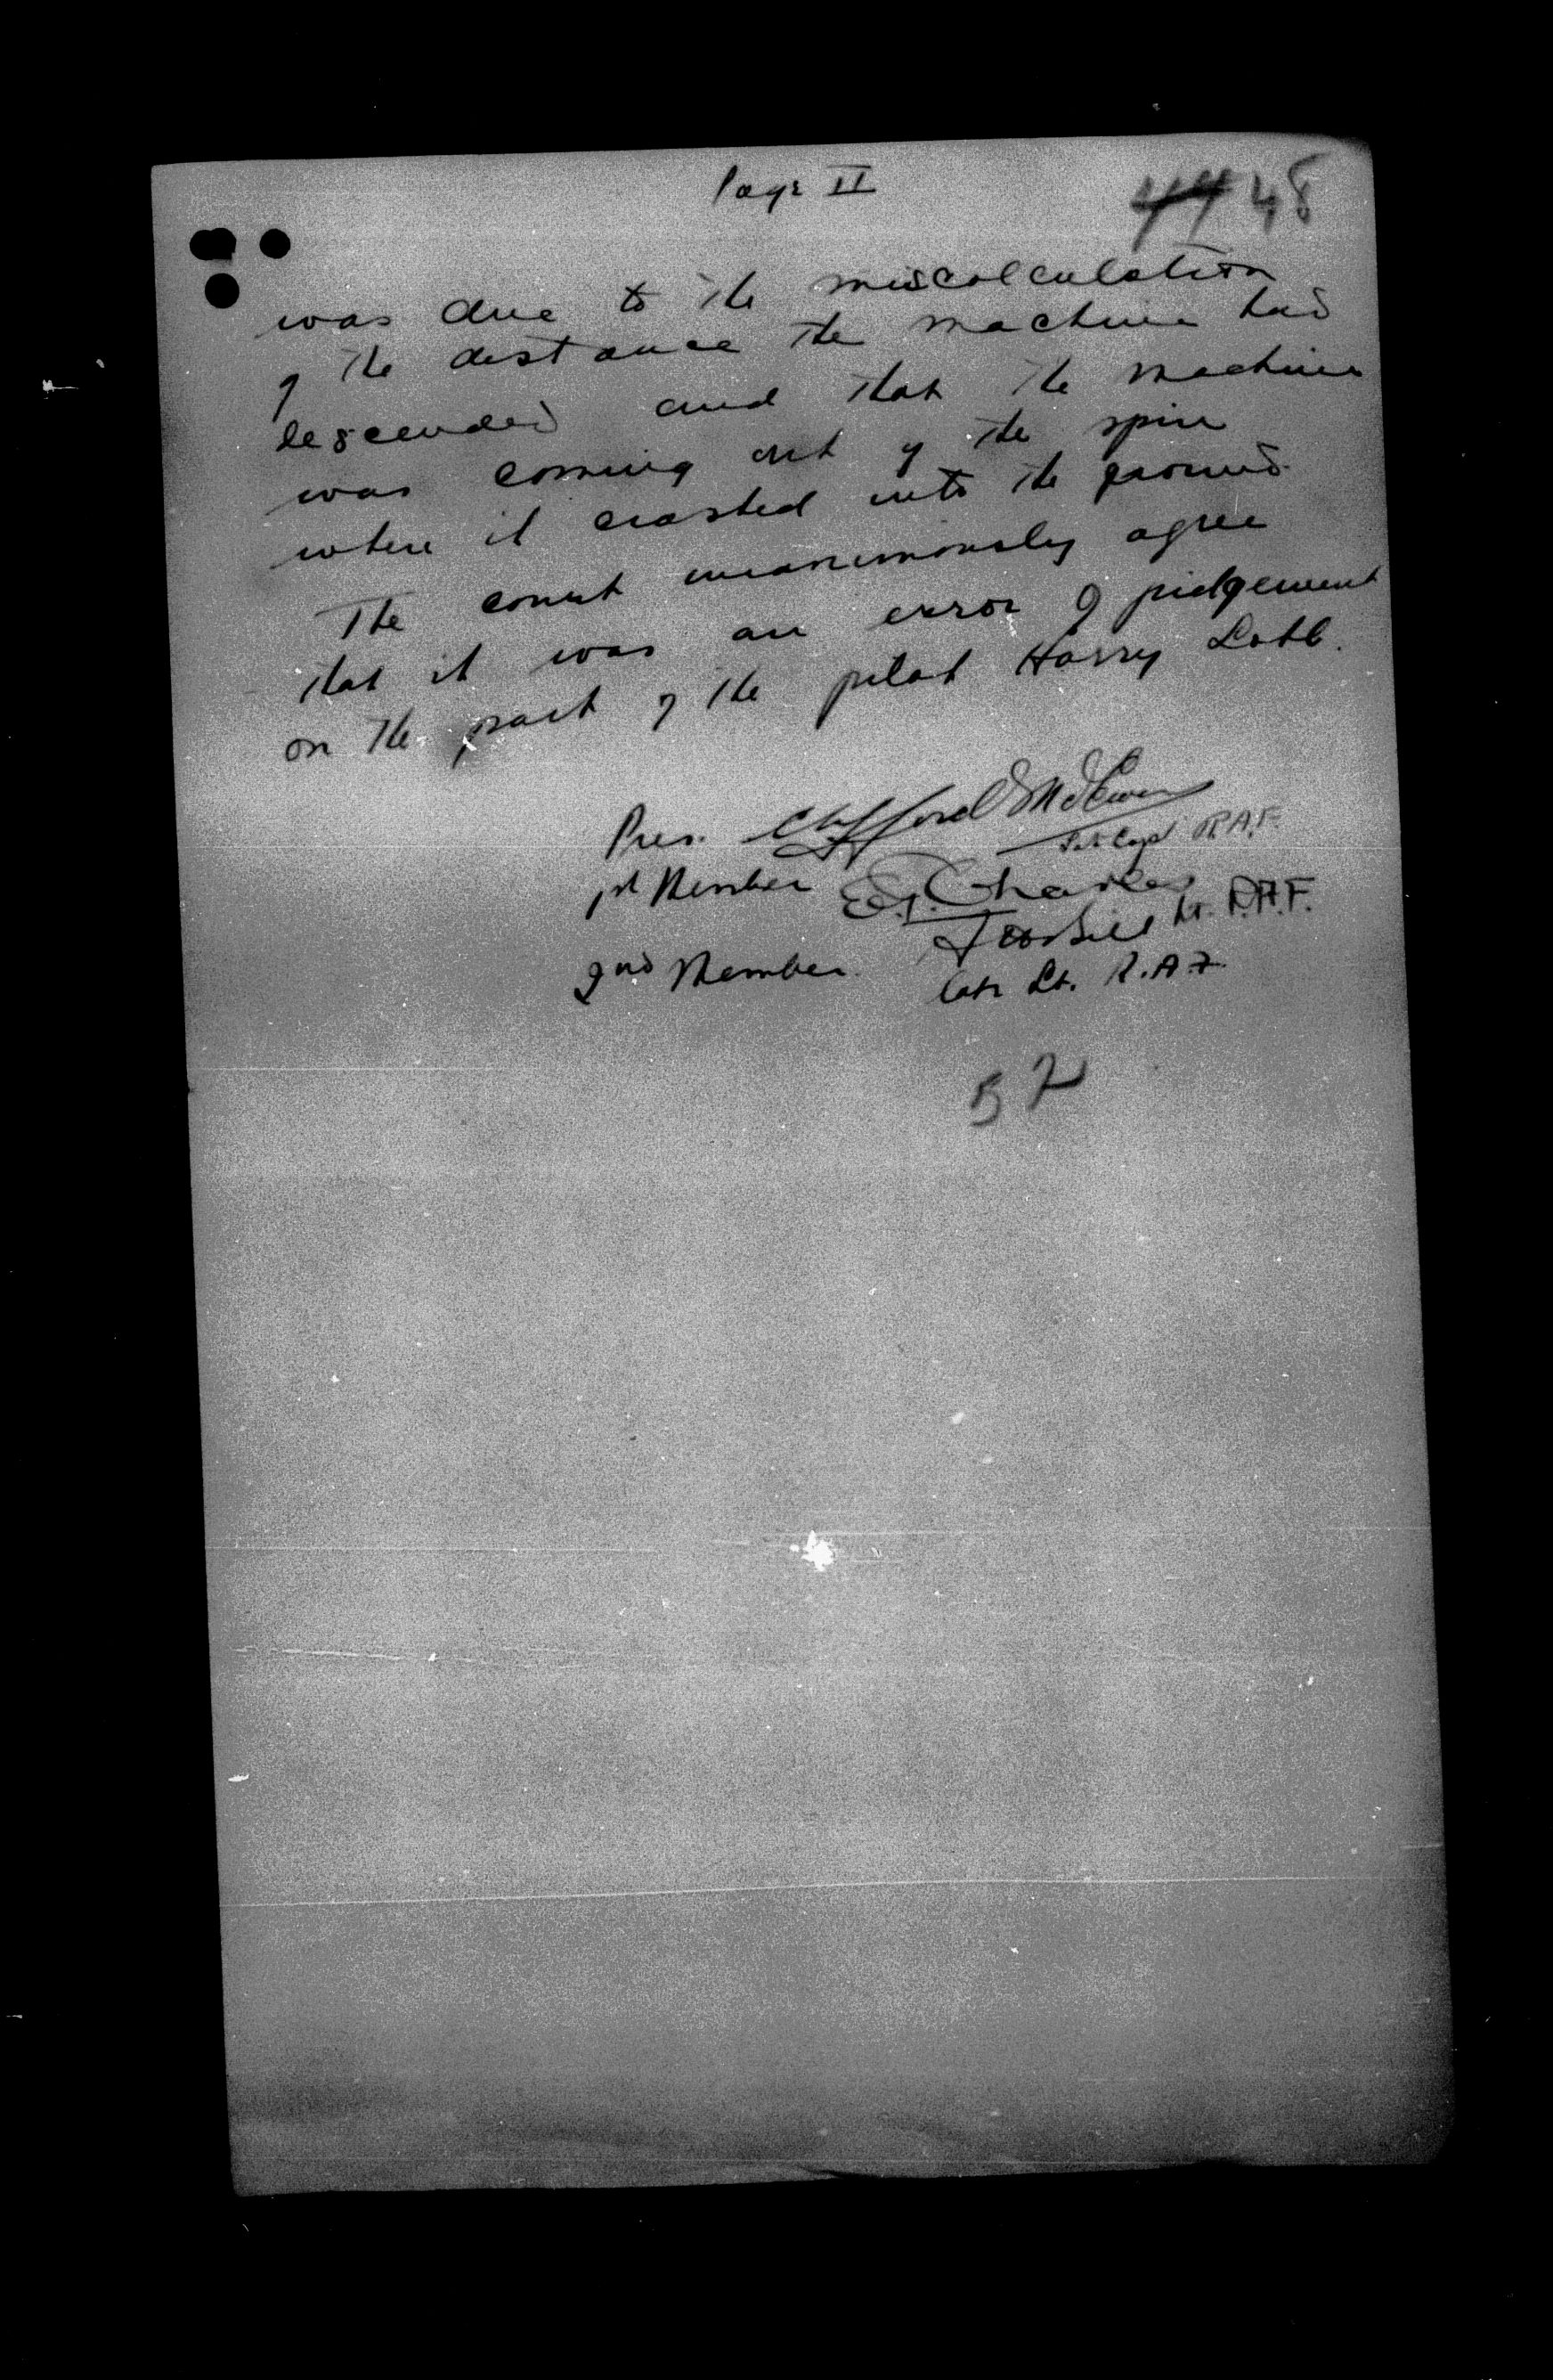 Page II
44 48
was due to the miscalculation
of the distance the machine had
descended and that the machine
was coming out of the spin
when it crashed into the ground.
The court unanimously agree
that it was an error of judgement
on the part of the pilot Harry Lobb.
Pres. Clifford McEwen
Capt R.A.F.
1st Member E. G. Charles
Lt. R.A.F.
2nd Member
Lt. R.A.F.
52